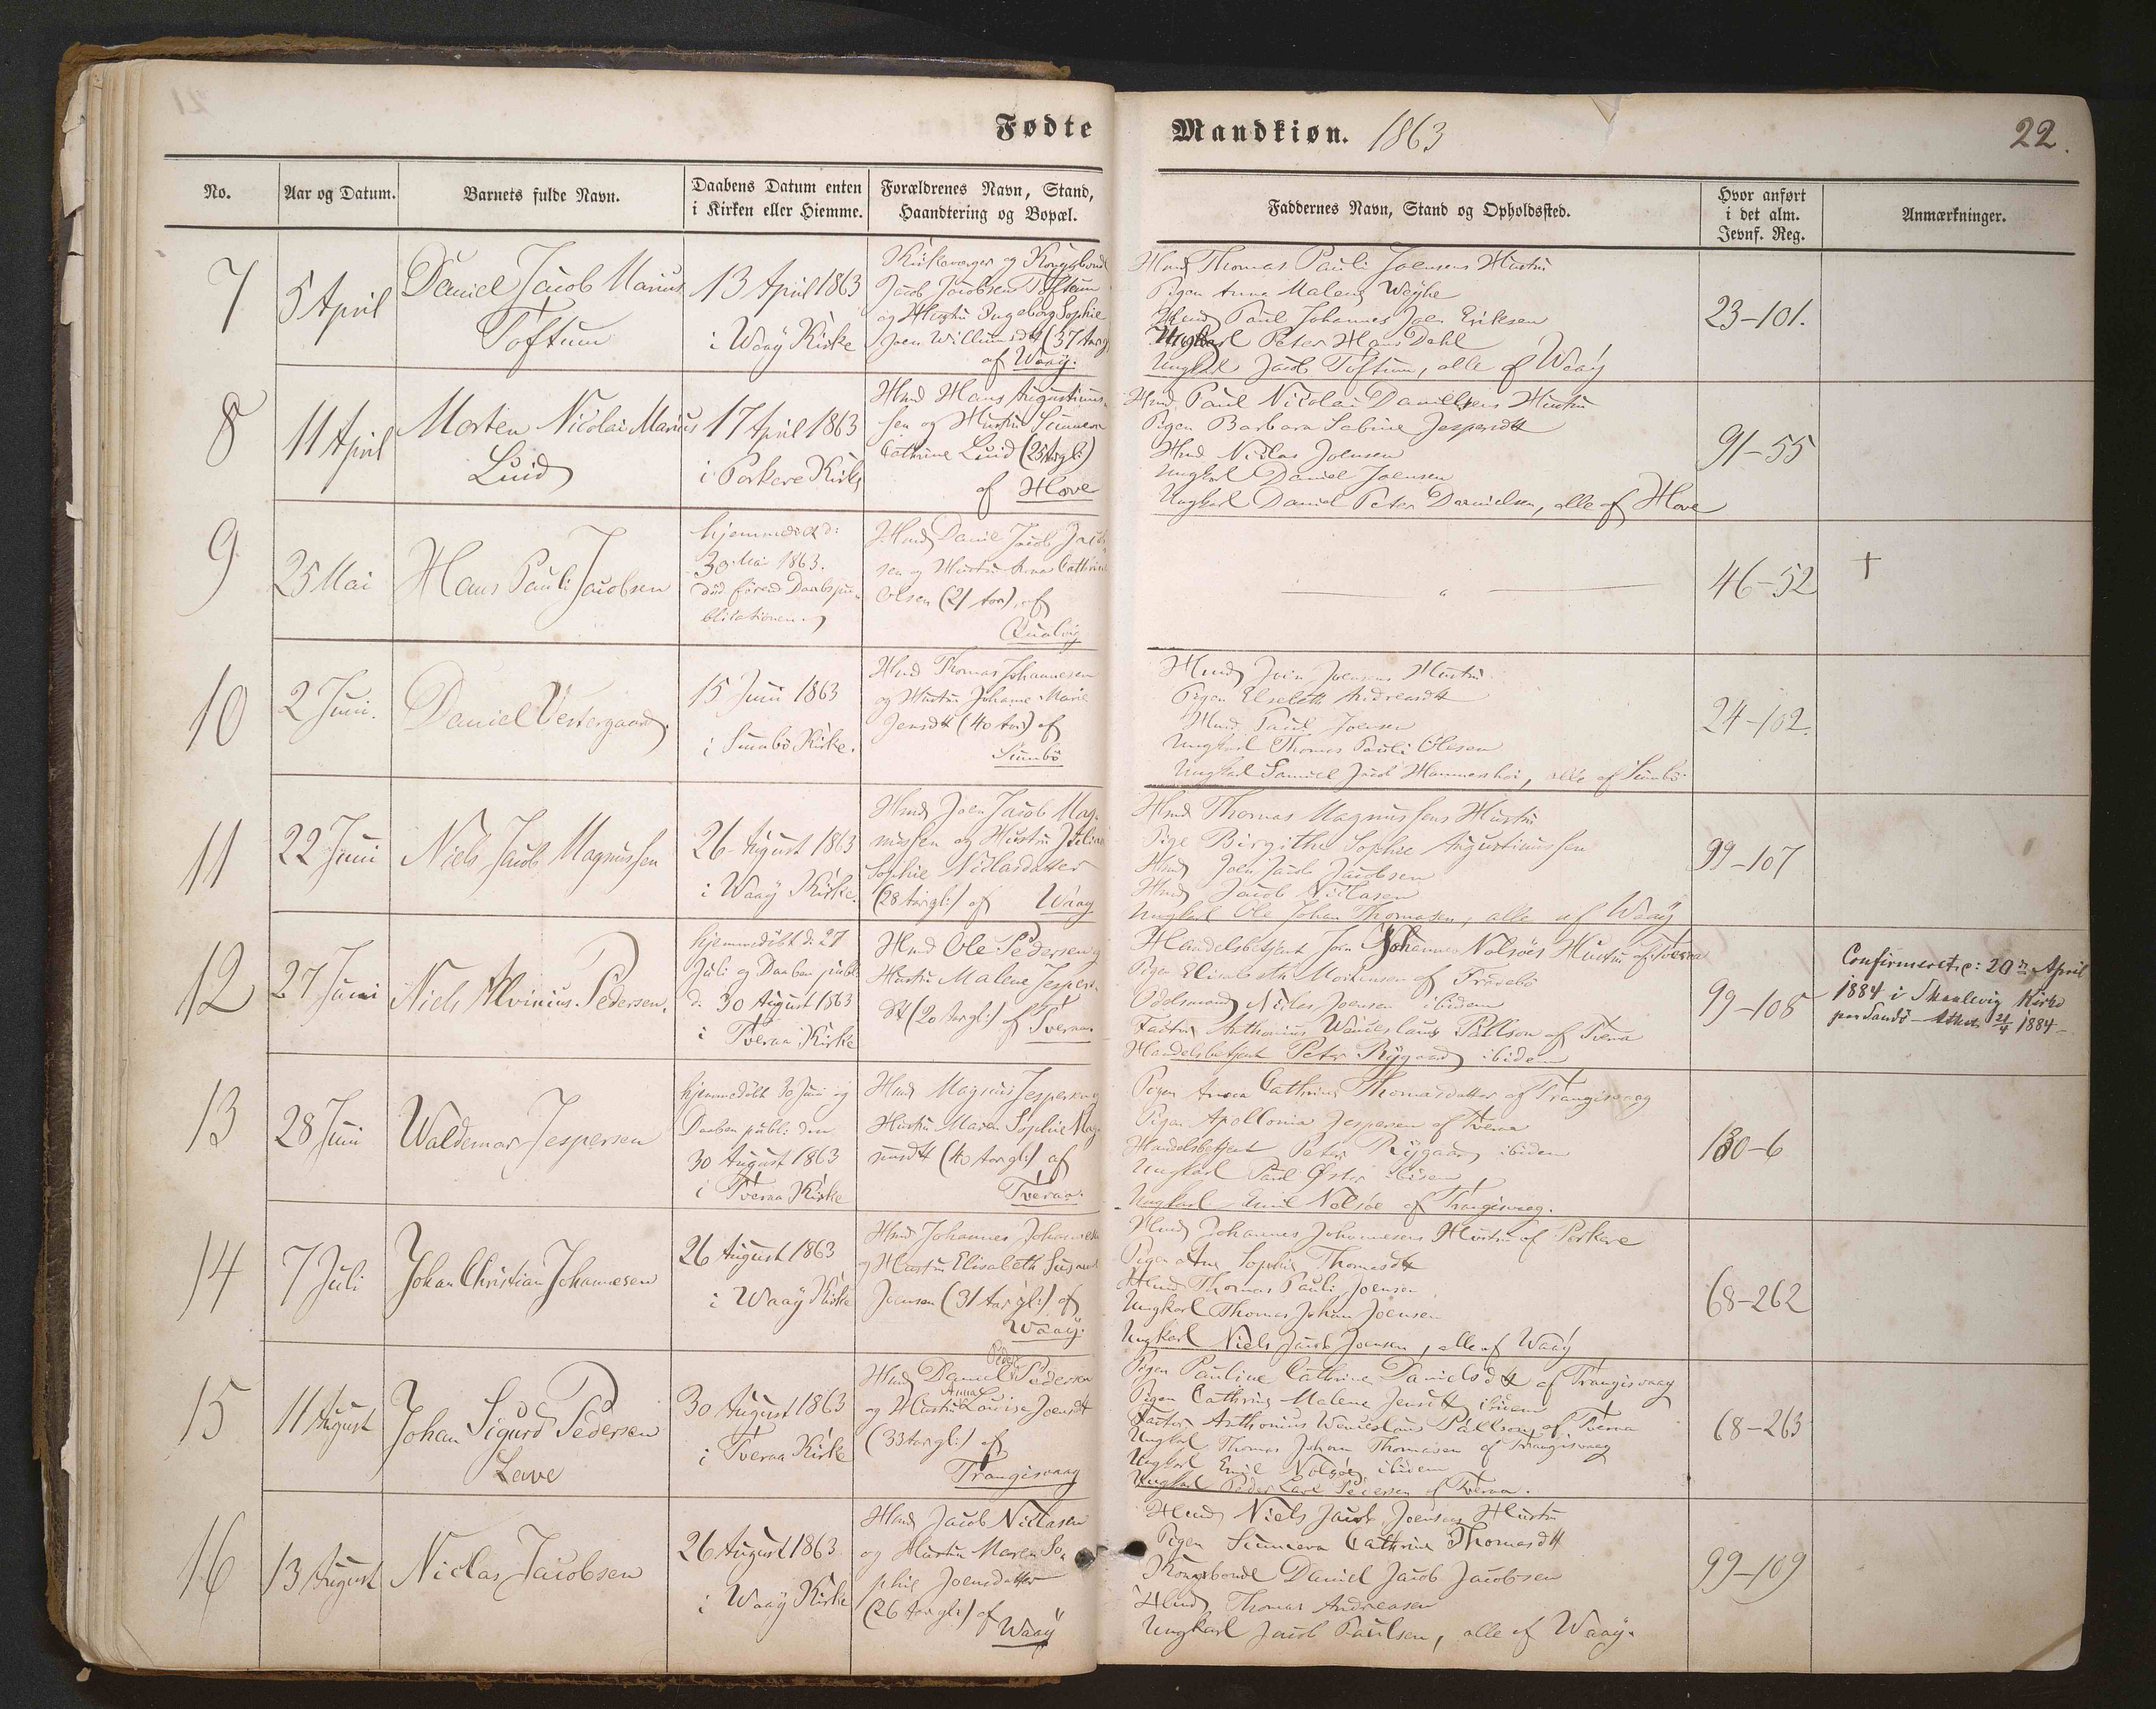 Fødte
Mandkiøn. 1863
22.
No.
Aar og Datum.
Barnets fulde Navn.
Daabens Datum enten
i Kirken eller Hiemme.
Forældrenes Navn, Stand,
Haandtering og Bopæl.
Faddernes Navn, Stand og Opholdssted.
Hvor anført
i det alm.
Jevnf. Reg.
Anmærkninger.
7
5 April
Daniel Jacob Marius
Toftum
13 April 1863
i Waaÿ Kirke
Kirkeværger og Kongsbonde
Jacob Jacobsen Toftum
og Hustru Ingeborg Sophie
Joen Willumsdtt (37 Aar gl)
af Waaÿ.
Hmd Thomas Pauli Joensens Hustru
Pigen Anna Malene Weÿhe
Hmd Paul Johannes Joen Eriksen
Ungkarl Peter Hans Dahl
Ungkarl Jacob Toftum, alle af Waaÿ
23-101.
8
11 April
Morten Nicolai Marius
Luid
17 April 1863
i Porkere Kirke
Hmd Hans Augustinus-
sen og Hustru Sunneva
Cathrine Luid (25 Aar gl:)
af Hove
Hmd Paul Nicolai Daniellsens Hustru
Pigen Barbara Sabine Jespersdtt
Hmd Niclas Joensen
Ungkarl Daniel Joensen
Ungkarl Daniel Peter Danielsen, alle af Hove
91-55
9
25 Mai
Hans Pauli Jacobsen
hjemmedøbt d:
30 Mai 1863.
død førend Daabspu-
blikationen
Hmd Daniel Jacob Jacob
sen og Hustru Anna Cathrine
Olsen (21 Aar), af
Qualvig
46-52
+
10
2 Juni.
Daniel Vestergaard.
15 Juni 1863
i Sumbø Kirke.
Hmd Thomas Johannesen
og Hustru Johanne Marie
Jensdtt (40 Aar) af
Sumbø
Hmd Joen Joensens Hustru.
Pigen Elsebeth Andreasdtt
Hmd Paul Joensen
Ungkarl Thomas Pauli Olesen
Ungkarl Samuel Jacob Hammershøi, alle af Sumbø.
24-102.
11
22 Juni
Niels Jacob Magnussen
26 August 1863
i Waaÿ Kirke.
Hmd Joen Jacob Mag-
nussen og Hustru
Sophie Niclasdatter
(28 Aar gl:) af Waaÿ
Hmd Thomas Magnussens Hustru
Pige Birgithe Sophie Augustinussen
Hmd Joen Jacob Jacobsen
Hmd Jacob Niclasen
Ungkarl Ole Johan Thomasen, alle af Waaÿ
99-107
12
27 Juni
Niels Alvinius Pedersen.
hjemmedøbt d: 27
Juli og Daaben publ:
d. 30 August 1863
i Tveraa Kirke
Hmd Ole Pedersen og
Hustru Malene Jespers-
dtt (20 Aar gl:) af Tveraa.
Handelsbetjent Joen Johannes Nolsøes Hustru af Tveraa
Pigen Elisabeth Mortensen af Frodebø
Odelsmand Niclas Joensen ibidem
Factor Anthonius Wenceslaus Pállson af Tveraa
Handelsbetjent Peter Rÿgaard ibidem
99-108
Confirmeret: 20de April
1884 i Skaalevig Kirke
paa Sandø - Attest 21/4 1884-
13
28 Juni
Waldemar Jespersen
hjemmedøbt 30 Juni og
Daaben publ: den
30 August 1863
i Tveraa Kirke
Hmd Magnus Jespersen og
Hustru Maren Sophie Mag-
nusdtt (40 Aar gl:) af
Tveraa.
Pigen Anna Cathrine Thomasdatter af Trangisvaag
Pigen Apollonia Jespersen af Tveraa
Handelsbetjent Peter Rÿgaard ibidem
Ungkarl Paul Øster ibidem
Ungkarl Emil Nolsøe af Trangisvaag.
130-6
14
7 Juli
Johan Christian Johannesen
26 August 1863
i Waaÿ Kirke
Hmd Johannes Johannesen
og Hustru Elisabeth Susanne
Joensen (31 Aar gl:) af
Waaÿ.
Hmd Johannes Johannesens Hustru af Porkere
Pigen Ane Sophie Thomasdtt
Hmd Thomas Pauli Joensen
Ungkarl Thomas Johan Joensen
Ungkarl Niels Jacob Joensen, alle af Waaÿ
68-262
15
11 August
Johan Sigurd Pedersen
Lave
30 August 1863
i Tveraa Kirke
Hmd Daniel Peder Pedersen
og Hustru Anna Louise Joensdtt
(33 Aar gl:) af
Trangisvaag
Pigen Pauline Cathrine Danielsdtt af Trangisvaag
Pigen Cathrine Malene Jensdtt ibidem
Factor Anthonius Wenceslaus Pállson, af Tveraa
Ungkarl Thomas Johan Thomasen af Trangisvaag
Ungkarl Emil Nolsøe, ibidem
Ungkarl Peder Carl Pedersen af Tveraa.
68-263
16
13 August
Niclas Jacobsen
26 August 1863
i Waaÿ Kirke
Hmd Jacob Niclasen
og Hustru Maren So-
phie Joensdatter
(26 Aar gl:) af
Waaÿ
Hmd Niels Jacob Joensens Hustru
Pigen Sunneva Cathrine Thomasdtt
Kongsbonde Daniel Jacob Jacobsen
Hmd Thomas Andreasen
Ungkarl Jacob Paulsen, alle af Waaÿ.
99-109